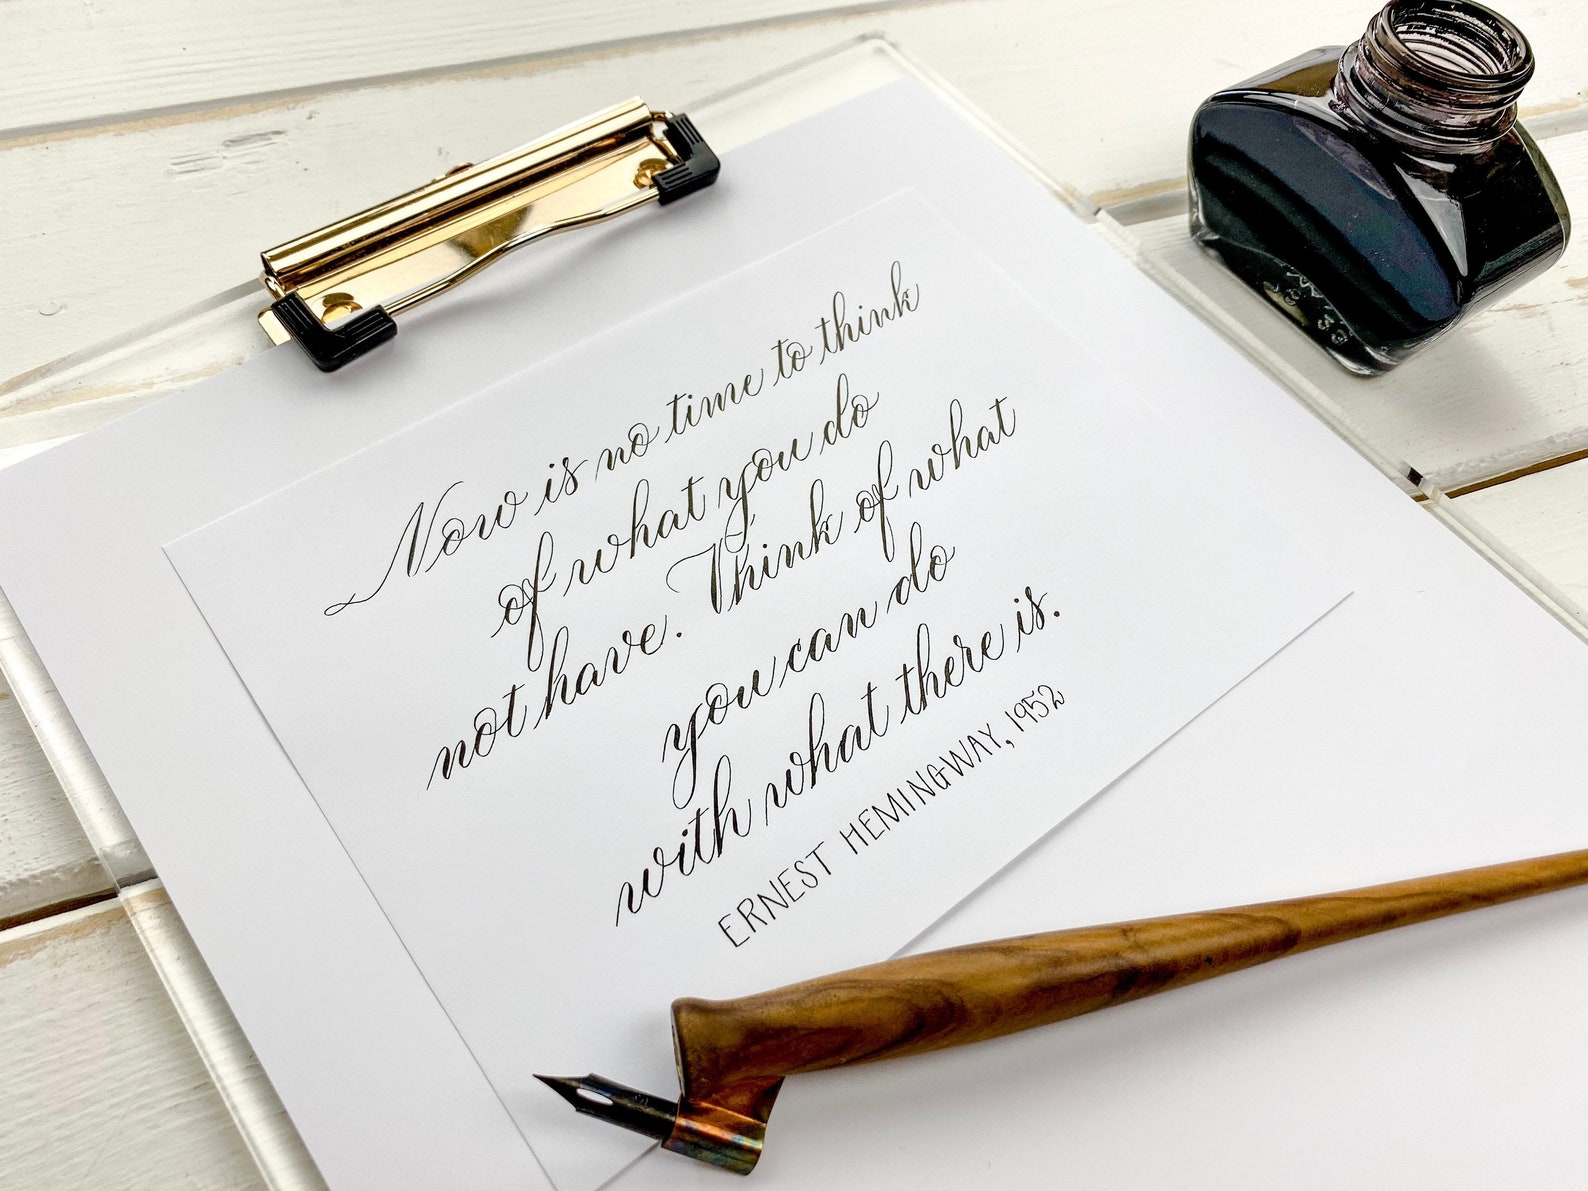 Now is no time to think
of what you do
not have. Think of what
you can do
with what there is.
ERNEST HEMINGWAY, 1952